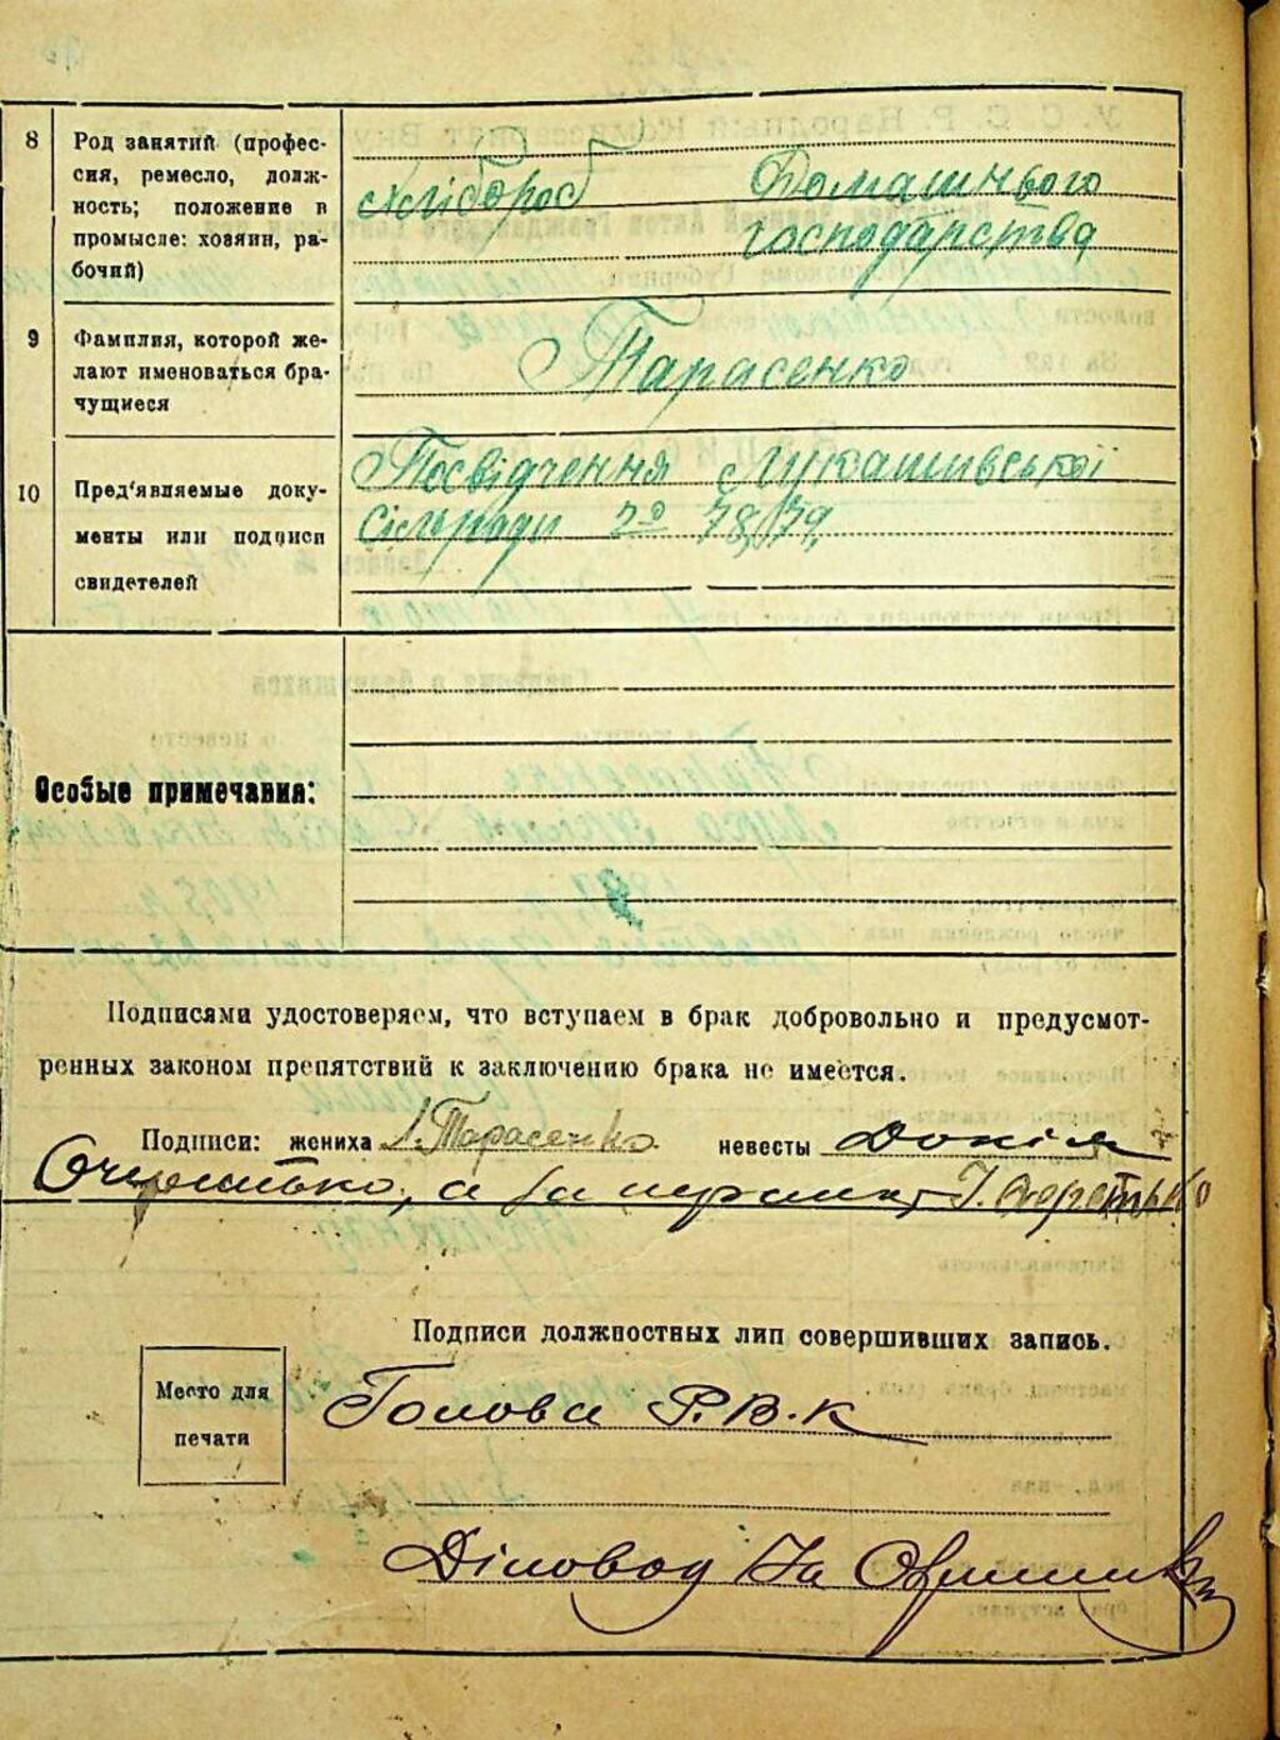 8 Род занятий (профес-
сия, ремесло, долж-
ность; положение в
промысле: хозяин, ра-
бочий)
Хлібороб Домашнього
господарства
9 Фамилия, которой же-
лают именоваться бра-
чущиеся
Тарасенко
10 Пред'являемые доку-
менты или подписи
свидетелей
Посвідчення Лукашивської
Сільради № 78, 79,
Особые примечания:
Подписями удостоверяем, что вступаем в брак добровольно и предусмот-
ренных законом препятствий к заключению брака не имеется.
Подписи: жениха Л. Тарасенко невесты Докія
Очеретько, а за неграмотну І. Очеретько
Подписи должностных лиц совершивших запись.
Место для
печати
Голова Р.В.К
Діловод